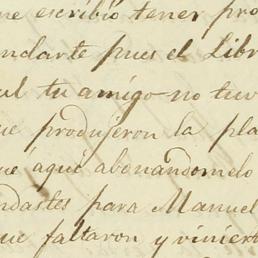 me escribió tener pro
ndarte pues el Libr
ul tu amigo no tuv
ue produjeron la pla
ué aqui abonándomelo
ndastes para Manuel
ue faltaron y viniert